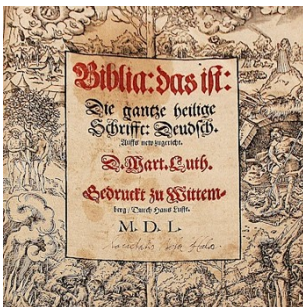 Biblia: das ist:
Die gantze heilige
Schrifft: Deudsch.
Auffs new zugericht.
D. Mart. Luth.
Gedruckt zu Wittem-
berg / Durch Hans Lufft.
M. D. L.